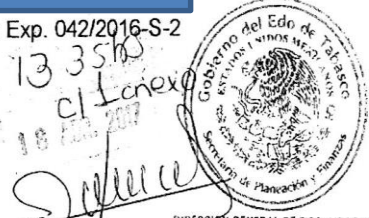 Exp. 042/2016-S-2
13 35hs
c/ 1 anexo
Gobierno del Edo de Tabasco
ESTADOS UNIDOS MEXICANOS
Secretaria de Planeación y Finanzas